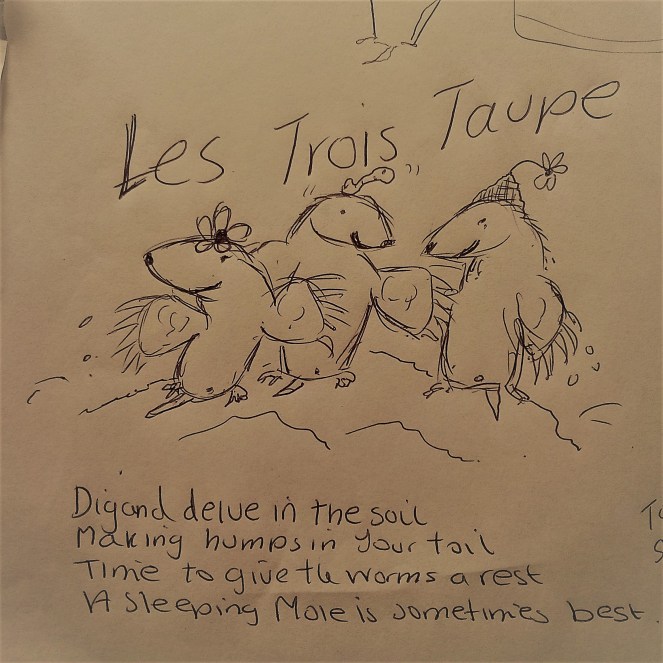 Les Trois Taupe
Dig and delve in the soil
Making humps in your toil
Time to give the worms a rest
A Sleeping Mole is sometimes best.